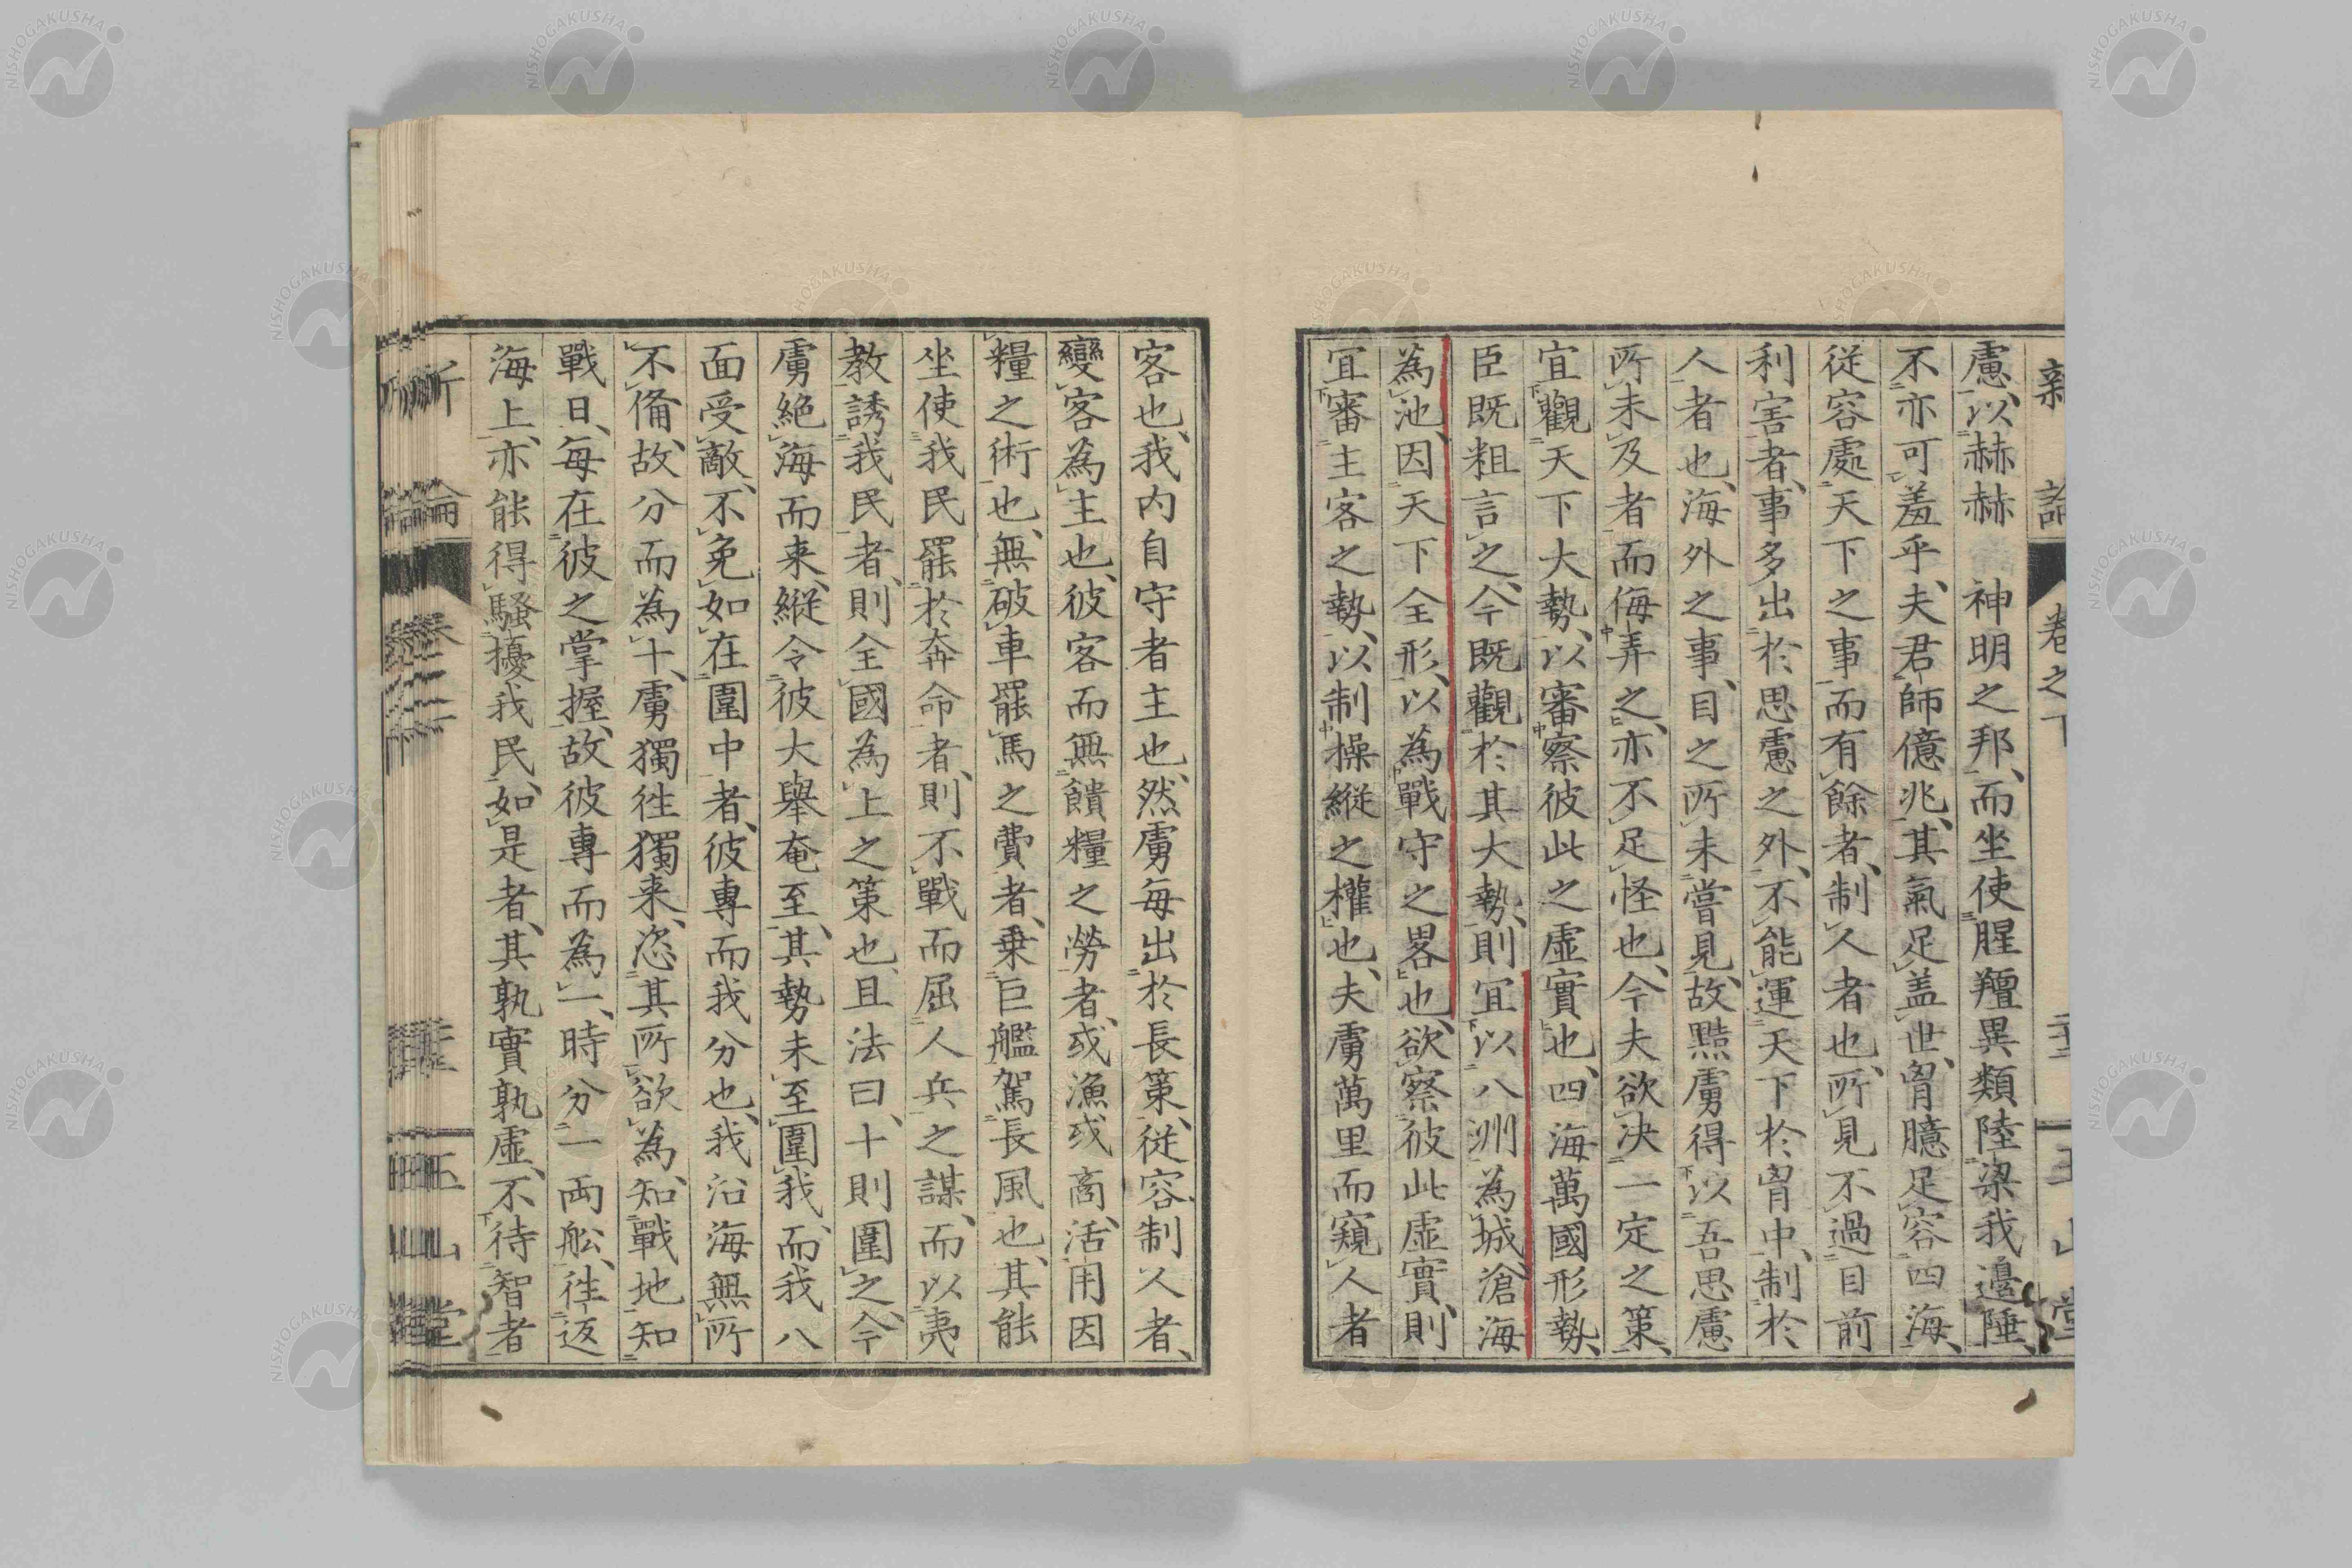 新論 卷之下 玉山堂
慮、以赫赫 神明之邦、而坐使腥羶異類陸梁我邊陲、
不亦可羞乎、夫君師億兆、其氣足盖世、胷臆足容四海、
從容處天下之事、而有餘者、制人者也、所見不過目前
利害者、事多出於思慮之外、不能運天下於胷中、制於
人者也、海外之事、目之所未嘗見、故黠虜得以吾思慮
所未及者而侮弄之、亦不足怪也、今夫欲决一定之策、
宜觀天下大勢、以審察彼此之虛實也、四海萬國形勢、
臣既粗言之、今既觀於其大勢、則宜以八洲為城、滄海
為池、因天下全形、以為戰守之畧也、欲察彼此虛實、則
宜審主客之勢、以制操縱之權也、夫虜萬里而窺人者
客也、我内自守者主也、然虜每出於長策、從容制人者、
變客為主也、彼客而無饋糧之勞者、或漁或商、活用因
糧之術也、無破車罷馬之費者、乗巨艦駕長風也、其能
坐使我民罷於奔命者、則不戰而屈人兵之謀、而以夷
教誘我民者、則全國為上之策也、且法曰、十則圍之、今
虜絶海而来、縱令彼大舉奄至、其勢未至圍我、而我八
面受敵、不免如在圍中者、彼專而我分也、我沿海無所
不備、故分而為十、虜獨徃獨来、恣其所欲為、知戰地知
戰日、每在彼之掌握、故彼專而為一、時分一両舩、徃返
海上、亦能得騷擾我民、如是者、其孰實孰虛、不待智者
新論 卷之下 玉山堂
NISHOGAKUSHA